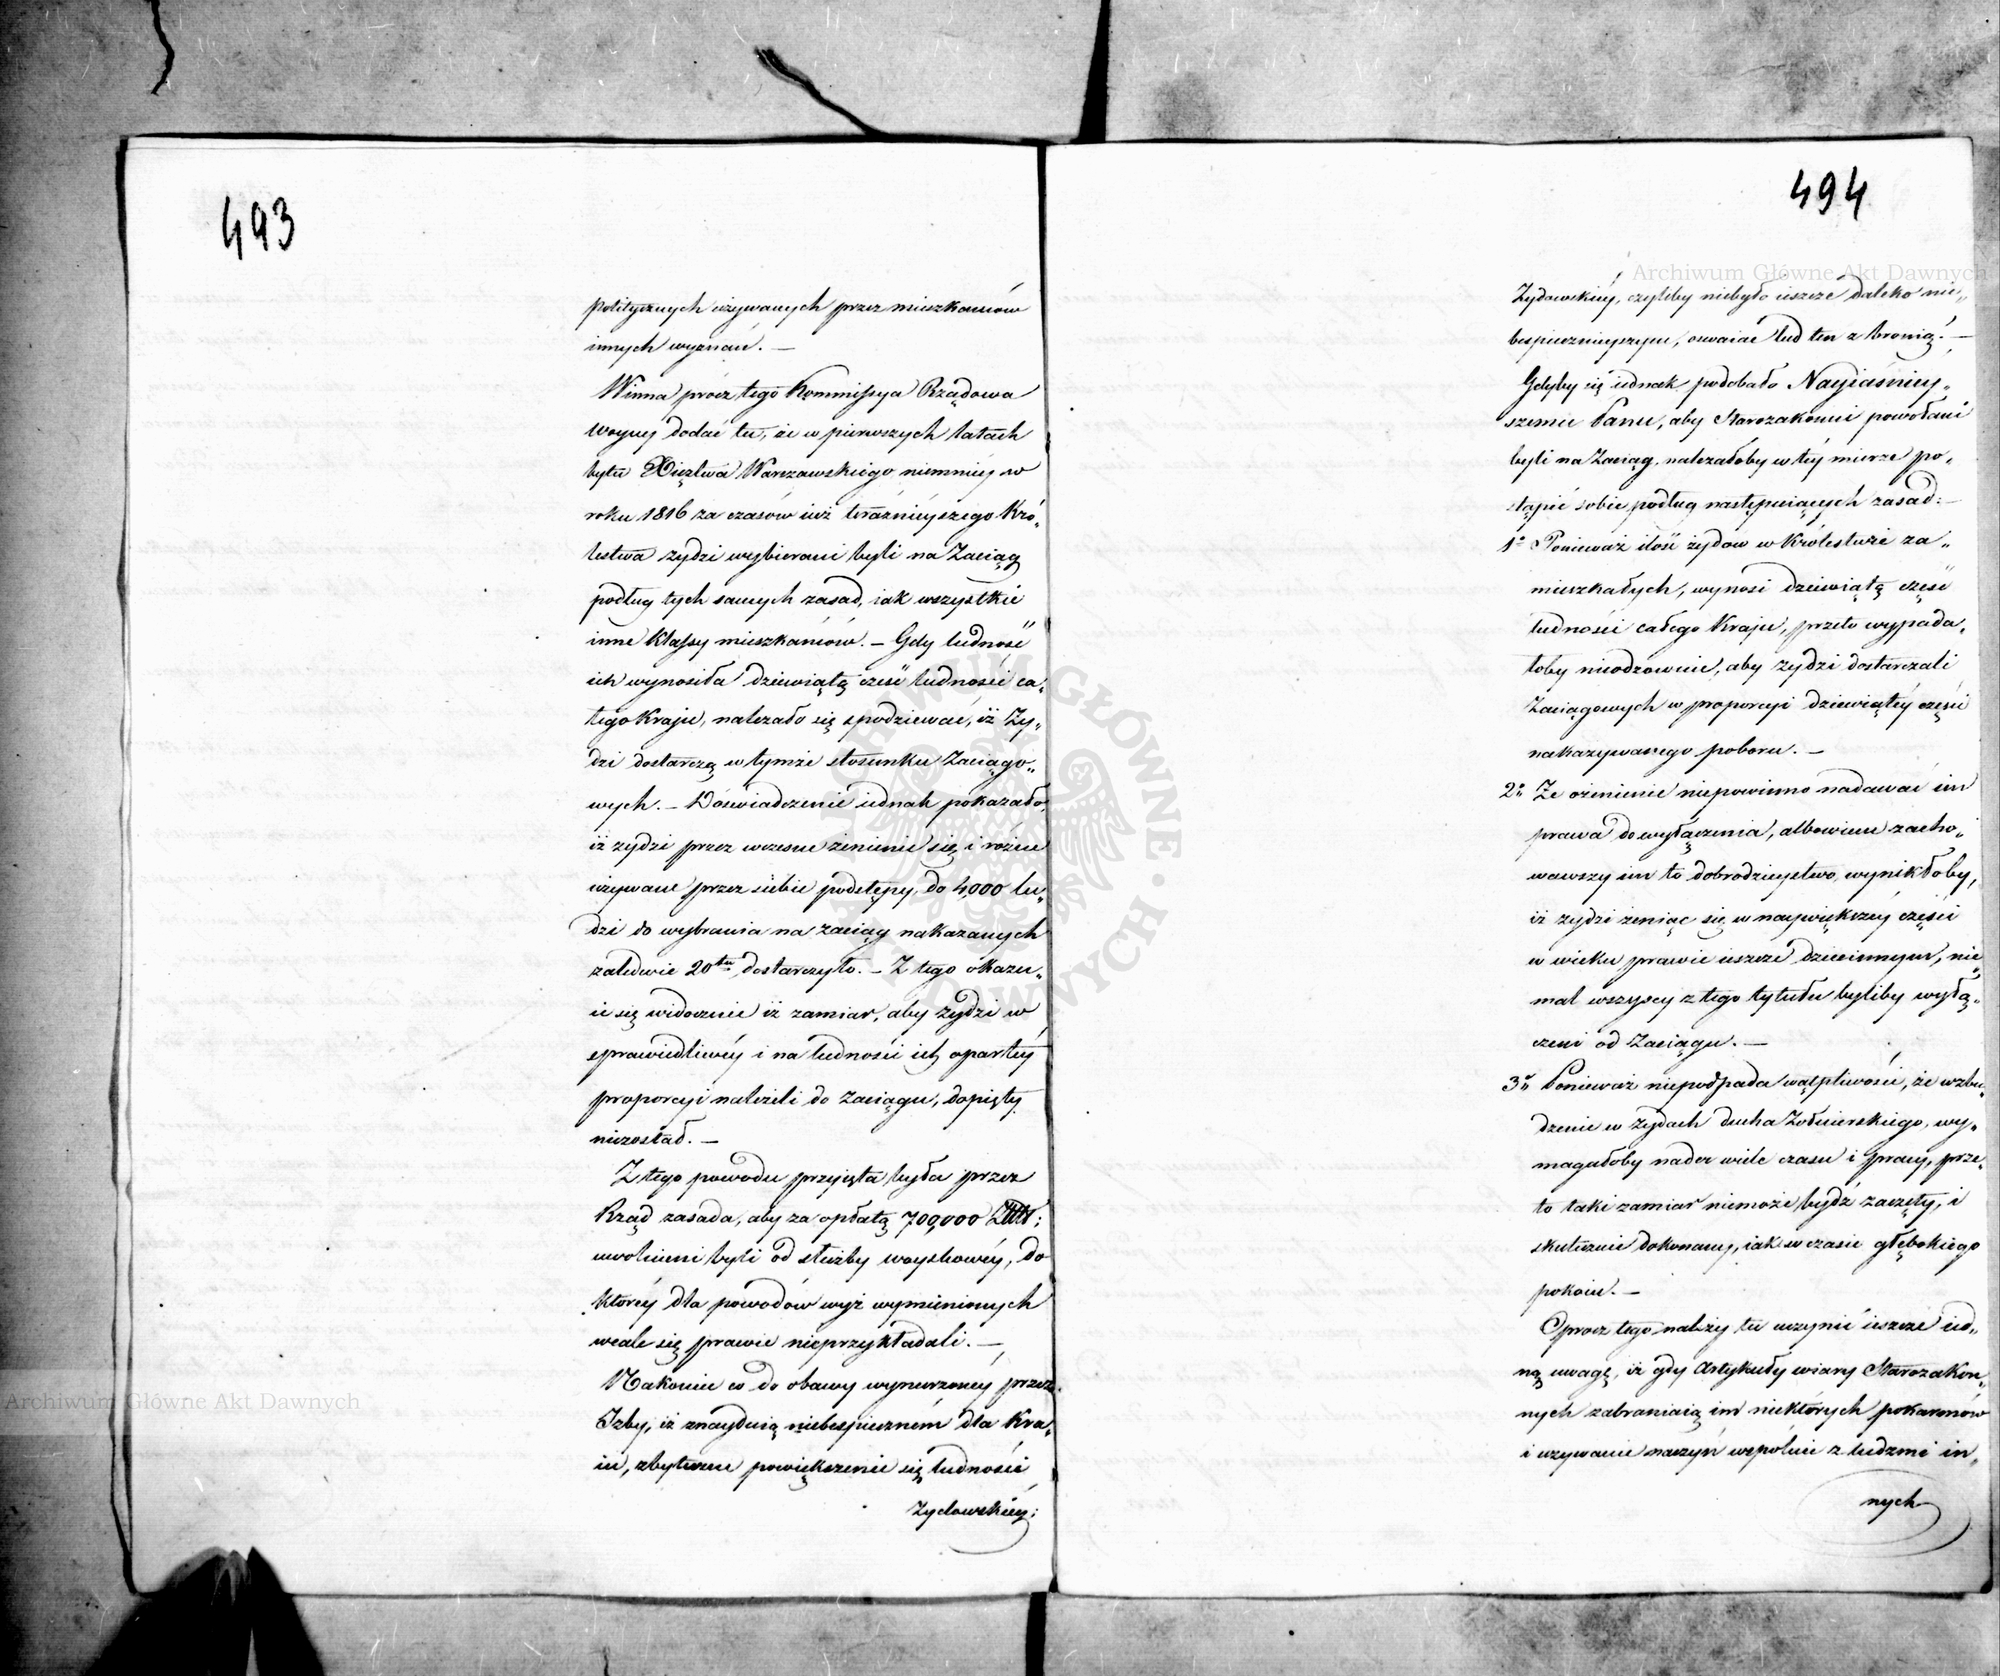 493
politycznych używanych przez mieszkańców
innych wyznań. —
Winna prócz tego Kommissya Rządowa
Woyny dodać tu, że w pierwszych latach
bytu Xięztwa Warszawskiego niemniéy w
roku 1816 za czasów iuż teraźnieyszego Kró„
lestwa żydzi wybierani byli na Zaciąg
podług tych samych zasad, iak wszystkie
inne Klassy mieszkańców. — Gdy ludność
ich wynosiła dziewiątą część ludności ca„
łego Kraju, należało się spodziewać, iż Ży„
dzi dostarczą w tymże stosunku Zaciągo„
wych. — Doświadczenie iednak pokazało,
iż żydzi przez wczesne żenienie się i różne
używane przez siebie podstępy, do 4,000 lu„
dzi do wybrania na zaciąg nakazanych
zaledwie 20tu dostarczyło. — Z tego okazu„
ie się widocznie iż zamiar, aby żydzi w
sprawiedliwéy i na ludności ich opartéy
proporcyi należeli do zaciągu, dopięty
niezostał. —
Z tego powodu przyięta była przez
Rząd zasada, aby za opłatą 700,000
uwolnieni byli od służby woyskowéy, do
któréy dla powodów wyż wymienionych
wcale się prawie nieprzykładali. —
Nakoniec co do obawy wynurzonéy przez
Izby, iż znayduią niebespiecznem dla Kra„
iu, zbyteczne powiększenie się ludności
Żydowskiéy;
494
Archiwum Główne Akt Dawnych
Żydowskiéy, czyliby niebyło ieszcze daleko nie„
bespiecznieyszym, oswaiać lud ten z bronią? —
Gdyby się iednak podobało Nayiaśniey„
szemu Panu, aby Starozakonni powołani
byli na Zaciąg, należałoby w téy mierze po„
stąpić sobie podług następuiących zasad: —
1o Ponieważ ilość żydow w Królestwie za„
mieszkałych, wynosi dziewiątą część
ludności całego Kraju, przeto wypada„
łoby nieodzownie, aby żydzi dostarczali
Zaciągowych w proporcyi dziewiątéy części
nakazywanego poboru. —
2o Że ożenienie niepowinno nadawać im
prawa do wyłączenia, albowiem zacho„
wawszy im to dobrodzieystwo, wynikłoby,
iż żydzi żeniąc się w naywiększéy części
w wieku prawie ieszcze dziecinnym, nie„
mal wszyscy z tego tytułu byliby wyłą„
czeni od Zaciągu. —
3o Ponieważ niepodpada wątpliwości, że wzbu„
dzenie w żydach ducha Żołnierskiego, wy„
magałoby nader wiele czasu i pracy, prze„
to taki zamiar niemoże bydź zaczęty, i
skutecznie dokonany, iak w czasie głębokiego
pokoiu. —
Oprocz tego należy tu uczynić ieszcze ied„
ną uwagę, iż gdy Artykuły wiary Starozakon„
nych zabraniaią im niektórych pokarmów
i używanie naczyń wspólnie z ludzmi in„
nych
Archiwum Główne Akt Dawnych
ARCHIWUM GŁÓWNE AKT DAWNYCH